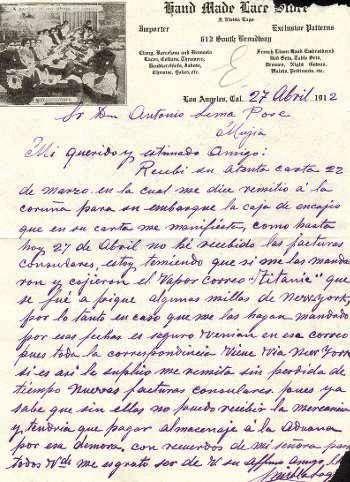 Hand Made Lace Store
Importer
Exclusive Patterns
612 South Broadway
Cluny, Barcelona and Renaissance
Laces, Collars,
French Linen Hand Embroidered
Bed Sets, Table Sets,
Los Angeles, Cal. 27 Abril 1912
Sr. Don Antonio Lema Pose
Mugia
Mi querido y estimado Amigo:
Recibi su atenta carta 22
de Marzo en la cual me dice remitio á la
coruña para su embarque la caja de encajes
que en su carta me manifiesta, como hasta
hoy 27 de Abril no hé recibido las facturas
consulares, estoy temiendo que si me las manda
ron y cojieron el Vapor correo "Titanic" que
se fué a pique algunas millas de New york,
por lo tanto en caso que me las hayan mandado
por esas fechas es seguro venian en ese correo
pues toda la correspondencia viene via New York
si es asi le suplico me remita sin perdida de
tiempo nuevas facturas consulares pues ya
sabe que sin ellas no puedo recibir la mercancia
y tendria que pagar almacenaje á la Aduana
por esa demora, con recuerdos de mi señora para
todos Vds me es grato ser de Vd su Affmo amigo